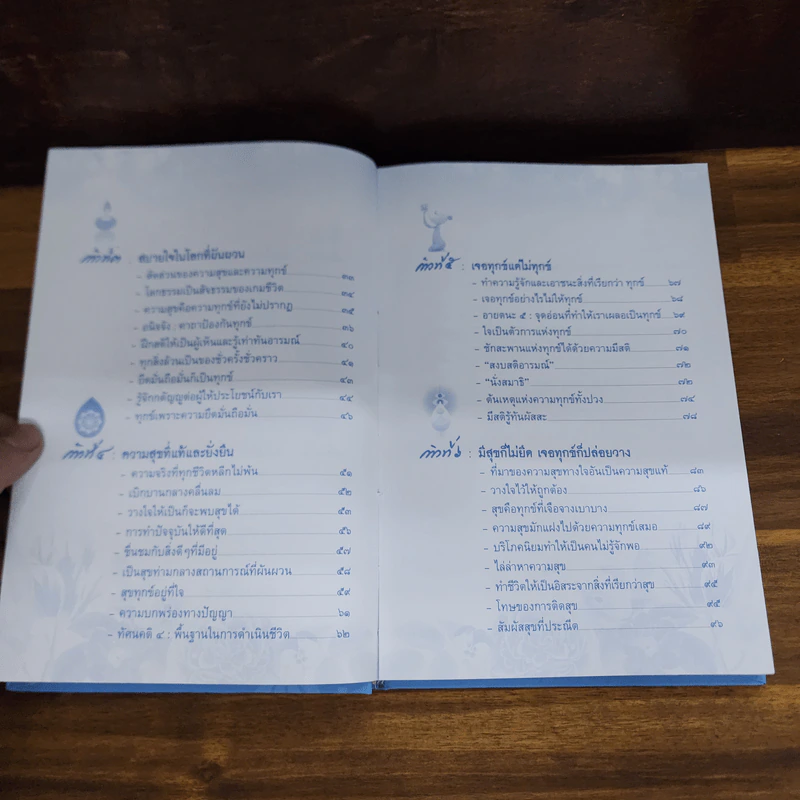 ก้าวที่ ๓ : สบายใจในโลกที่ผันผวน
- สัดส่วนของความสุขและความทุกข์ ๓๓
- โลกธรรมเป็นสัจธรรมของเกมชีวิต ๓๔
- ความสุขคือความทุกข์ที่ยังไม่ปรากฏ ๓๕
- อนิจจัง : คาถาป้องกันทุกข์ ๓๖
- ฝึกสติให้เป็นผู้เห็นและรู้เท่าทันอารมณ์ ๔๐
- ทุกสิ่งล้วนเป็นของชั่วครั้งชั่วคราว ๔๑
- ยึดมั่นถือมั่นก็เป็นทุกข์ ๔๓
- รู้จักกตัญญูต่อผู้ให้ประโยชน์กับเรา ๔๔
- ทุกข์เพราะความยึดมั่นถือมั่น ๔๖
ก้าวที่ ๔ : ความสุขที่แท้และยั่งยืน
- ความจริงที่ทุกชีวิตหลีกไม่พ้น ๕๑
- เบิกบานกลางคลื่นลม ๕๒
- วางใจให้เป็นก็จะพบสุขได้ ๕๓
- การทำปัจจุบันให้ดีที่สุด ๕๖
- ชื่นชมกับสิ่งดีๆที่มีอยู่ ๕๗
- เป็นสุขท่ามกลางสถานการณ์ที่ผันผวน ๕๘
- สุขทุกข์อยู่ที่ใจ ๕๙
- ความบกพร่องทางปัญญา ๖๑
- ทัศนคติ ๔ : พื้นฐานในการดำเนินชีวิต ๖๒
ก้าวที่ ๕ : เจอทุกข์แต่ไม่ทุกข์
- ทำความรู้จักและเอาชนะสิ่งที่เรียกว่า ทุกข์ ๖๗
- เจอทุกข์อย่างไรไม่ให้ทุกข์ ๖๘
- อายตนะ ๕ : จุดอ่อนที่ทำให้เราเผลอเป็นทุกข์ ๖๙
- ใจเป็นตัวการแห่งทุกข์ ๗๐
- ชักสะพานแห่งทุกข์ได้ด้วยความมีสติ ๗๑
- “สงบสติอารมณ์” ๗๒
- “นั่งสมาธิ” ๗๒
- ต้นเหตุแห่งความทุกข์ทั้งปวง ๗๔
- มีสติรู้ทันผัสสะ ๗๘
ก้าวที่ ๖ : มีสุขก็ไม่ยึด เจอทุกข์ก็ปล่อยวาง
- ที่มาของความสุขทางใจอันเป็นความสุขแท้ ๘๓
- วางใจไว้ให้ถูกต้อง ๘๖
- สุขคือทุกข์ที่เจือจางเบาบาง ๘๗
- ความสุขมักแฝงไปด้วยความทุกข์เสมอ ๘๙
- บริโภคนิยมทำให้เป็นคนไม่รู้จักพอ ๙๒
- ไล่ล่าหาความสุข ๙๓
- ทำชีวิตให้เป็นอิสระจากสิ่งที่เรียกว่าสุข ๙๕
- โทษของการติดสุข ๙๕
- สัมผัสสุขที่ประณีต ๙๖